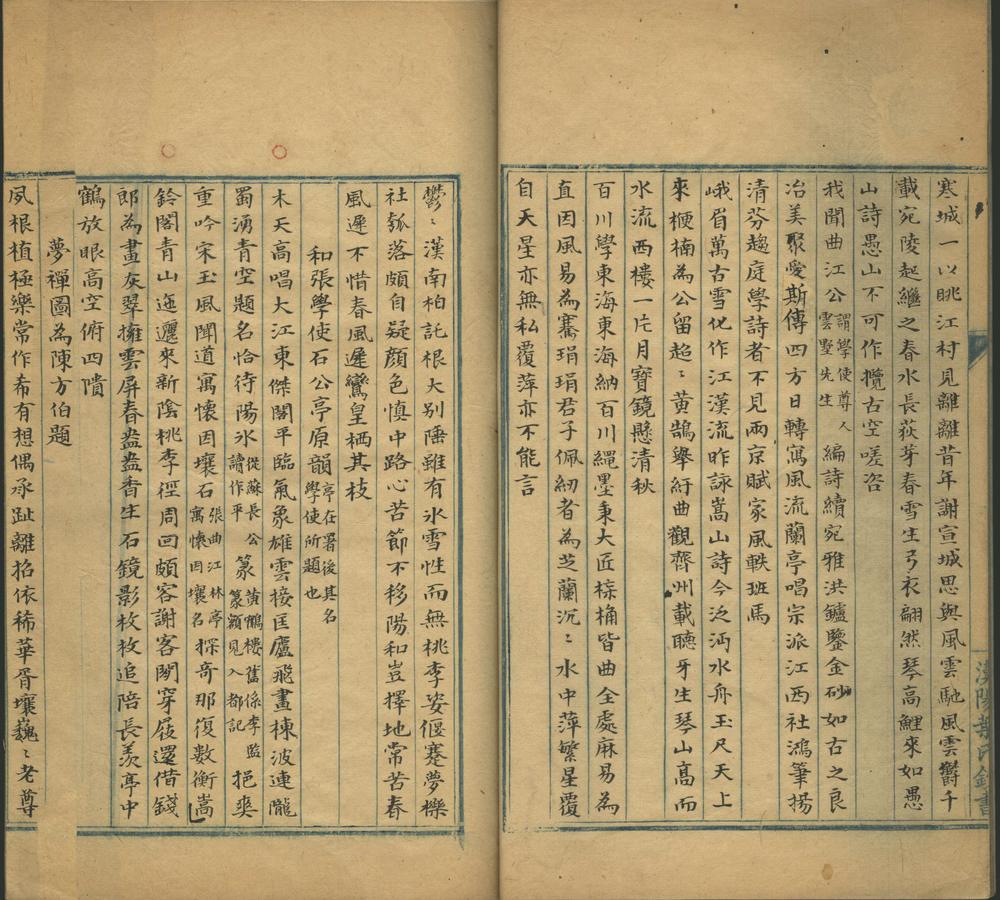 寒城一以眺江村見離離昔年謝宣城思與風雲馳風雲鬱千
載宛陵起繼之春水長荻芽春雪生弓衣翩然琴高鯉來如愚
山詩愚山不可作攬古空嗟咨
我聞曲江公謂學使尊人雲墅先生編詩續宛雅洪鑪鑒金砂如古之良
冶美聚愛斯傳四方日轉寫風流蘭亭唱宗派江西社鴻筆揚
清芬趨庭學詩者不見兩京賦家風軼班馬
峨眉萬古雪化作江漢流昨詠嵩山詩今泛沔水舟玉尺天上
來梗楠為公留超〻黃鵠舉紆曲觀齊州載聽牙生琴山高而
水流西樓一片月寶鏡懸清秋
百川學東海東海納百川繩墨秉大匠榱桷皆曲全處麻易為
直因風易為騫琄琄君子佩紉者為芝蘭沉〻水中萍繁星覆
自天星亦無私覆萍亦不能言
漢陽葉氏鈔書
鬱〻漢南柏託根大別陲雖有冰雪性而無桃李姿偃蹇夢櫟
社瓠落頗自疑顏色慎中路心苦節不移陽和豈擇地常苦春
風遲不惜春風遲鸞皇栖其枝
和張學使石公亭原韻亭在署後其名學使所題也
木天高唱大江東傑閣平臨氣象雄雲接匡廬飛畫棟波連隴
蜀湧青空題名恰待陽冰從蘇長公讀作平篆黃鶴樓舊係李監篆額見入都記挹奭
重吟宋玉風聞道寓懷因壤石張曲江林亭寓懷因壤名探奇那復數衡嵩
鈴閣青山迤邐來新陰桃李徑周回頗容謝客閒穿屐還借錢
郎為畫灰翠擁雲屏春盎盎香生石鏡影枚枚追陪長羨亭中
鶴放眼高空俯四隤
夢禪圖為陳方伯題
夙根植極樂常作希有想偶承趾離招依稀華胥壤巍〻老尊